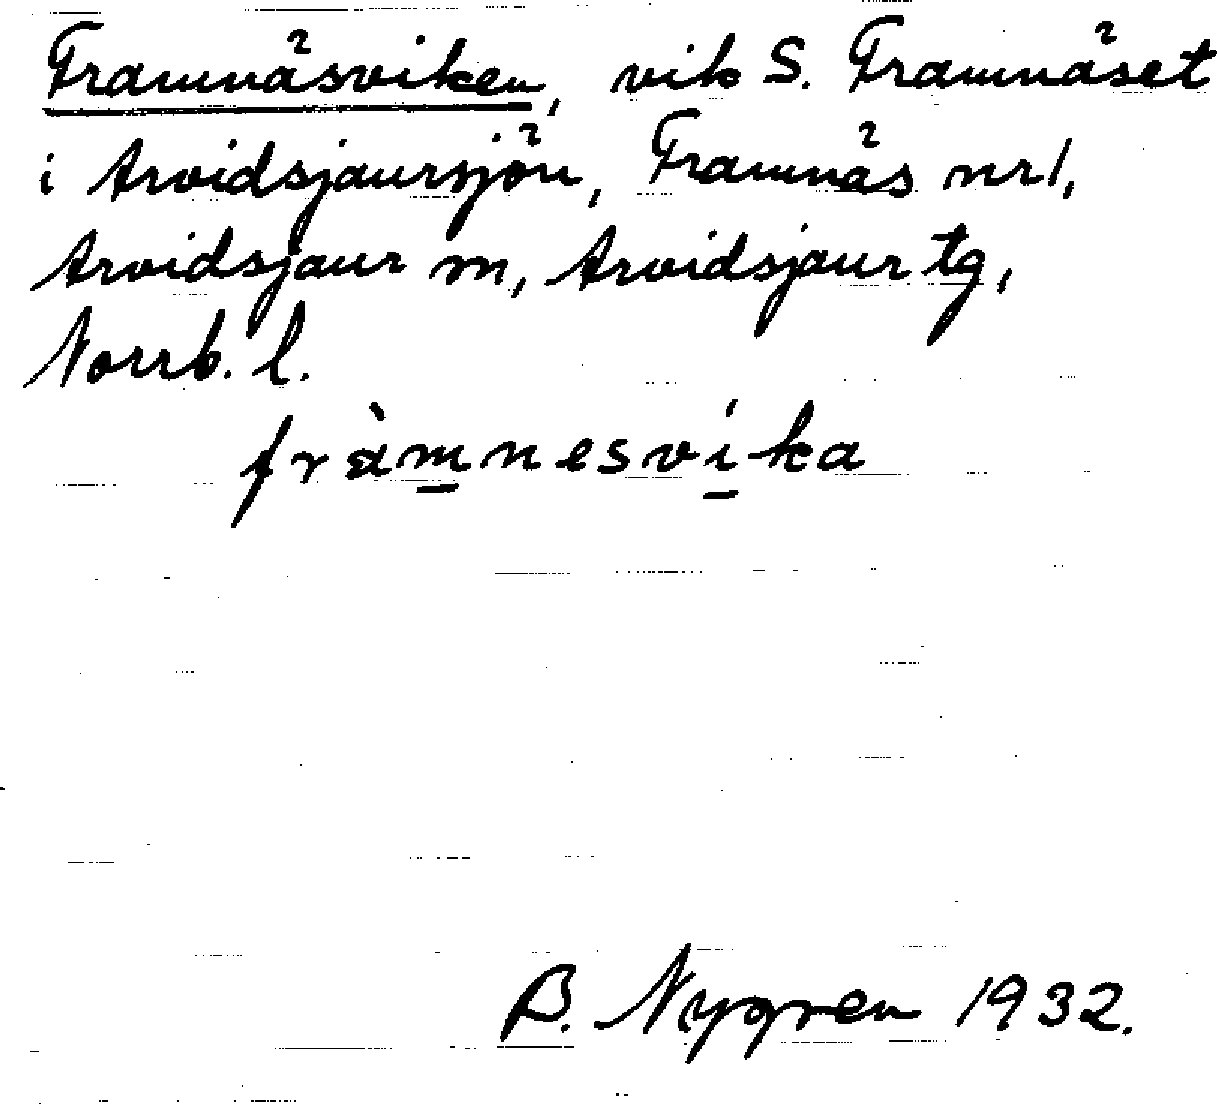 Framnäsviken, vik S. Framnäset
i Arvidsjaursjön, Framnäs nr 1,
Arvidsjaur m, Arvidsjaur tg,
Norrb. l.
fràmnesvíka
B. Nygren 1932.